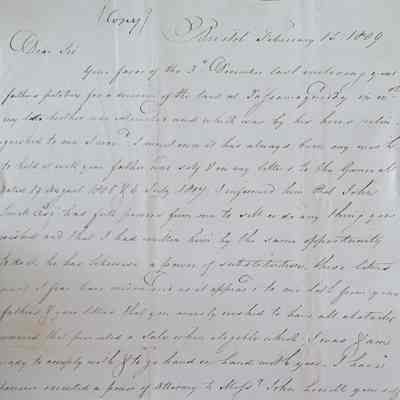 (Copy)
Bristol February 15. 1809
Dear Sir
Your favor of the 3rd December last enclosing your
fathers petition for a division of the land at Passamaquoddy in wch
my late brother was interested and which was by his heirs relin-
quished to me I recd. I must own it has always been my wish
to hold it with your father was sold & in my letters to the General
dated 19 August 1806 & 6 July 1807 I informed him that John
Esqr. has full powers from me to sell or do any thing you
wished and that I had written him by the same opportunity
to do so he has likewise a power of substitution, these letters
must I fear have miscarried as it appears to me both from your
fathers & your letters that you merely wished to have all obstacles
removed that prevented a Sale when eligible which I was & am
ready to comply with & to go hand in hand with you. I have
executed a power of Attorney to Messrs. John Lowell